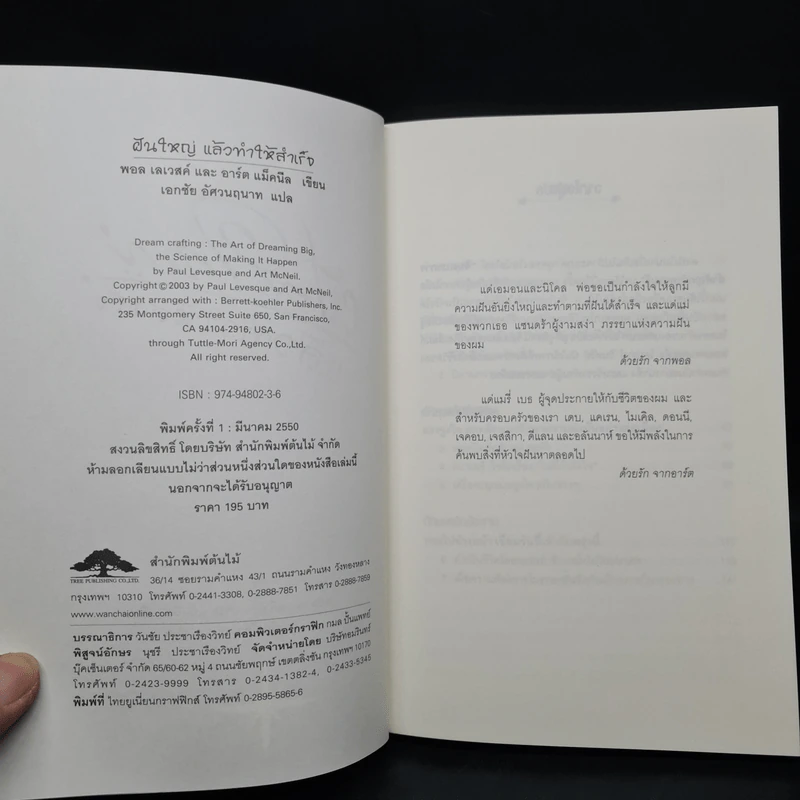 ฝันใหญ่ แล้วทำให้สำเร็จ
พอล เลเวสค์ และ อาร์ต แม็คนีล เขียน
เอกชัย อัศวนฤนาท แปล
Dream crafting : The Art of Dreaming Big,
the Science of Making It Happen
by Paul Levesque and Art McNeil.
Copyright © 2003 by Paul Levesque and Art McNeil,
Copyright arranged with : Berrett-koehler Publishers, Inc.
235 Montgomery Street Suite 650, San Francisco,
CA 94104-2916, USA.
through Tuttle-Mori Agency Co.,Ltd.
All right reserved.
ISBN : 974-94802-3-6
พิมพ์ครั้งที่ 1 : มีนาคม 2550
สงวนลิขสิทธิ์ โดยบริษัท สำนักพิมพ์ต้นไม้ จำกัด
ห้ามลอกเลียนแบบไม่ว่าส่วนหนึ่งส่วนใดของหนังสือเล่มนี้
นอกจากจะได้รับอนุญาต
ราคา 195 บาท
TREE PUBLISHING CO.,LTD.
สำนักพิมพ์ต้นไม้
36/14 ซอยรามคำแหง 43/1 ถนนรามคำแหง วังทองหลาง
กรุงเทพฯ 10310 โทรศัพท์ 0-2441-3308, 0-2888-7851 โทรสาร 0-2888-7859
www.wanchaionline.com
บรรณาธิการ วันชัย ประชาเรืองวิทย์ คอมพิวเตอร์กราฟิก กมล ปั้นแพทย์
พิสูจน์อักษร นุชรี ประชาเรืองวิทย์ จัดจำหน่ายโดย บริษัทอมรินทร์
บุ๊คเซ็นเตอร์ จำกัด 65/60-62 หมู่ 4 ถนนชัยพฤกษ์ เขตตลิ่งชัน กรุงเทพฯ 10170
โทรศัพท์ 0-2423-9999 โทรสาร 0-2434-1382-4, 0-2433-5345
พิมพ์ที่ ไทยยูเนี่ยนกราฟฟิกส์ โทรศัพท์ 0-2895-5865-6
แด่เอมอนและนิโคล พ่อขอเป็นกำลังใจให้ลูกมี
ความฝันอันยิ่งใหญ่และทำตามที่ฝันได้สำเร็จ และแด่แม่
ของพวกเธอ แซนดร้าผู้งามสง่า ภรรยาแห่งความฝัน
ของผม
ด้วยรัก จากพอล
แด่แมรี่ เบธ ผู้จุดประกายให้กับชีวิตของผม และ
สำหรับครอบครัวของเรา เดบ, แคเรน, ไมเคิล, ดอนนี,
เจคอบ, เจสสิกา, ดีแลน และอลันนาห์ ขอให้มีพลังในการ
ค้นพบสิ่งที่หัวใจฝันหาตลอดไป
ด้วยรัก จากอาร์ต